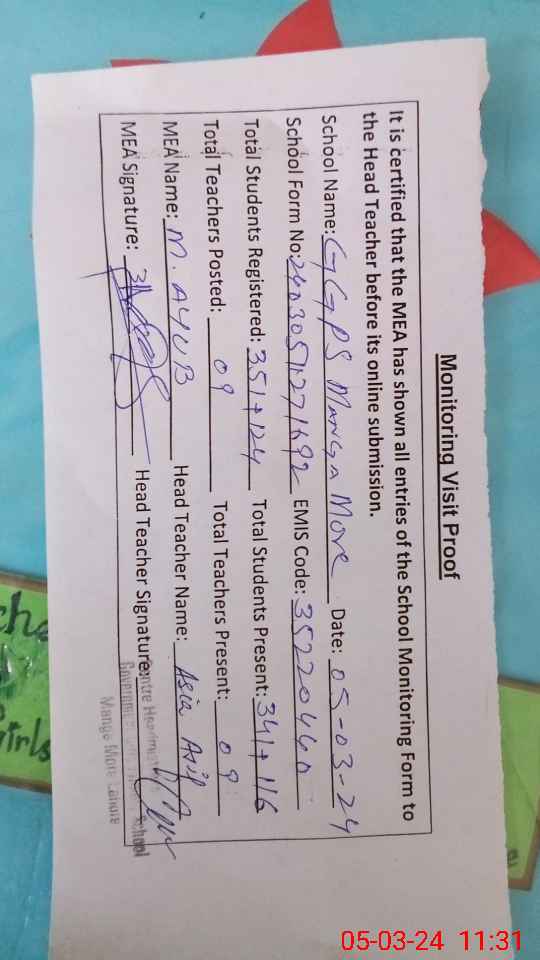 Monitoring Visit Proof
It is certified that the MEA has shown all entries of the School Monitoring Form to
the Head Teacher before its online submission.
School Name: GGPS Manga More Date: 05-03-24
School Form No: 2403051271692 EMIS Code: 35220460
Total Students Registered: 351+124 Total Students Present: 341+116
Total Teachers Posted: 09 Total Teachers Present: 09
MEA Name: M. AYUB Head Teacher Name: Asia Asif
MEA Signature: Head Teacher Signature:
Centre Headmistress
Government Girls School
Manga More Lahore
irls
05-03-24 11:31